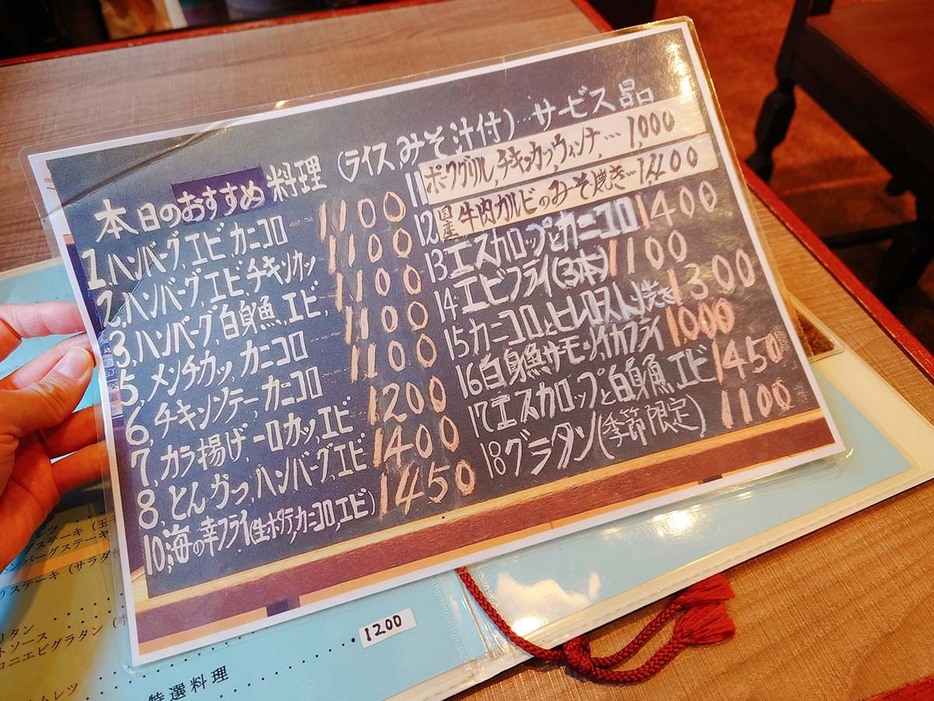 本日のおすすめ料理(ライスみそ汁付)…サービス品
1,ハンバーグ,エビ,カニコロ 1100
2,ハンバーグ,エビ,チキンカツ 1100
3,ハンバーグ,白身魚,エビ, 1100
5,メンチカツ,カニコロ 1100
6,チキンソテー,カニコロ 1100
7,カラ揚げ,一口カツ,エビ 1200
8,とんかつ,ハンバーグ,エビ 1400
10,海の幸フライ(生ホタテ,カニコロ,エビ) 1450
11 ポークグリル,チキンカツ,ウィンナ…1,000
12 国産牛肉カルビのみそ焼き…1400
13 エスカロップとカニコロ 1400
14 エビフライ(3本) 1100
15 カニコロとヒレロースト焼き 1300
16 白身魚サーモン,イカフライ 1000
17 エスカロップと白身魚,エビ 1450
18 グラタン(季節限定) 1100
ステーキ
ハンバーグステーキ
ステーキ(サラダ
ソース
エビグラタン
1200
特選料理